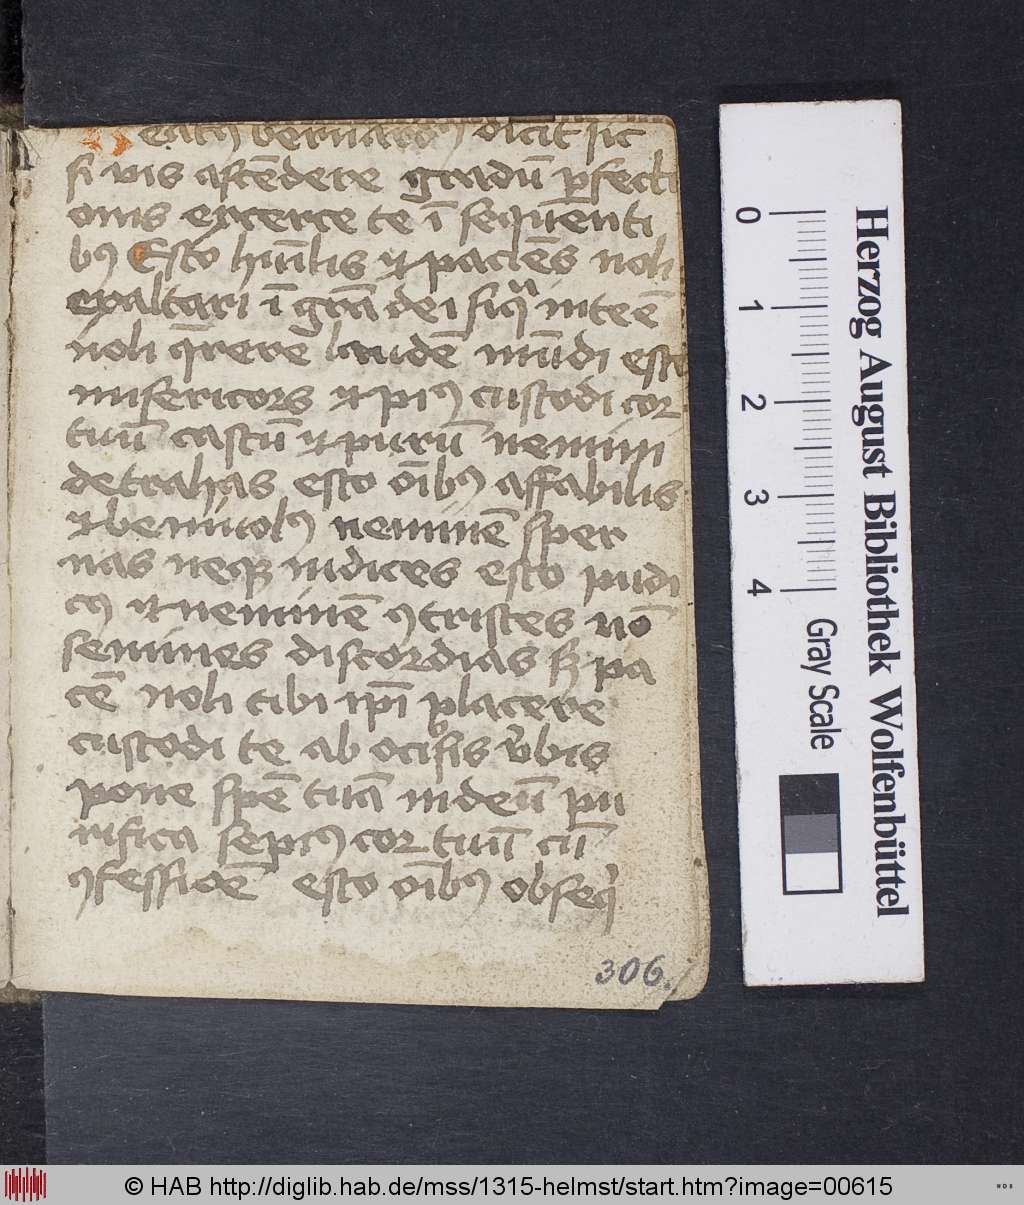 eatꝰ bernardꝰ dicit sic
si vis ascēdere gradū ꝑfecti
onis exerce te ī sequenti
bꝰ Esto hūīlis ⁊ paciēs noli
exaltari ī gr̄a dei siq̄ in te ē
noli q̄rere laudē mūdi esto
misericors ⁊ piꝰ custodi cor
tuū castū ⁊ purū nemini
detrahas esto oībꝰ affabilis
⁊ beniuolꝰ neminē sper
nas neqꝫ iudices esto pudi
cꝰ ⁊ neminē ꝯtristes nō
semines discordias sꝫ pa
cē noli tibi ip̄i placere
custodi te ab ociosis v̾bis
pone spē tuā in deū pu
rifica sepiꝰ cor tuū cū
ꝯfessiōē esto oībꝰ obseq̇
306.
0
1
2
3
4
Herzog August Bibliothek Wolfenbüttel
Gray Scale
© HAB http://diglib.hab.de/mss/1315-helmst/start.htm?image=00615